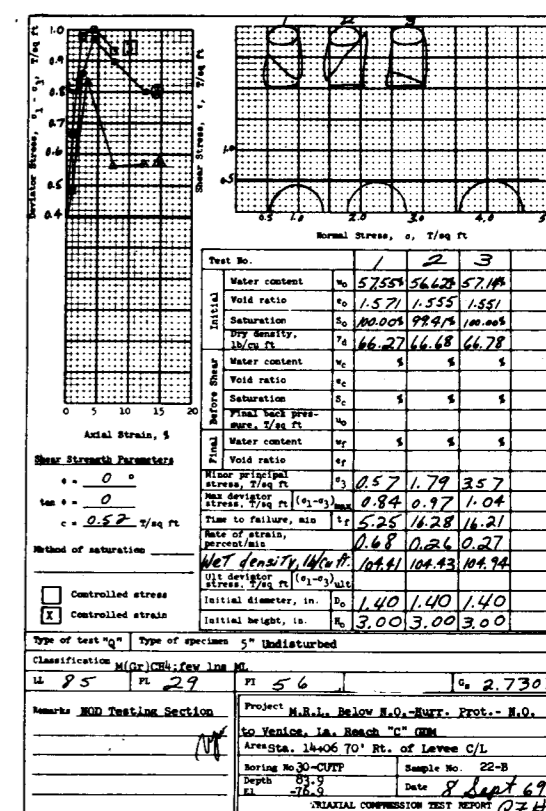 1 2 3
Deviator Stress, σ1 - σ3, T/sq ft
1.0
0.9
0.8
0.7
0.6
0.5
0.4
0 5 10 15 20
Axial Strain, %
Shear Stress, τ, T/sq ft
1.0
0.5
0.5 1.0 2.0 3.0 4.0 5
Normal Stress, σ, T/sq ft
Shear Strength Parameters
φ = 0 °
tan φ = 0
c = 0.52 T/sq ft
Method of saturation
Controlled stress
X Controlled strain
Test No. 1 2 3
Initial
Water content w₀ 57.55% 56.62% 57.14%
Void ratio e₀ 1.571 1.555 1.551
Saturation S₀ 100.00% 99.41% 100.00%
Dry density, lb/cu ft γd 66.27 66.68 66.78
Before Shear
Water content wc % % %
Void ratio ec
Saturation Sc % % %
Final back pressure, T/sq ft u₀
Final
Water content wf % % %
Void ratio ef
Minor principal stress, T/sq ft σ3 0.57 1.79 3.57
Max deviator stress, T/sq ft (σ1-σ3)max 0.84 0.97 1.04
Time to failure, min tf 5.25 16.28 16.21
Rate of strain, percent/min 0.68 0.26 0.27
Wet density, lb/cu ft. 104.41 104.43 104.94
Ult deviator stress, T/sq ft (σ1-σ3)ult
Initial diameter, in. D₀ 1.40 1.40 1.40
Initial height, in. H₀ 3.00 3.00 3.00
Type of test "Q" Type of specimen 5" Undisturbed
Classification M(Gr)CH4;few lns ML
LL 85 PL 29 PI 56 Gs 2.730
Remarks NOD Testing Section
Project M.R.L. Below N.O.-Hurr. Prot.- N.O.
to Venice, La. Reach "C" GDM
Area Sta. 14+06 70' Rt. of Levee C/L
Boring No 30-CUTP Sample No. 22-B
Depth 83.9
El -76.9
Date 8 Sept 69
TRIAXIAL COMPRESSION TEST REPORT